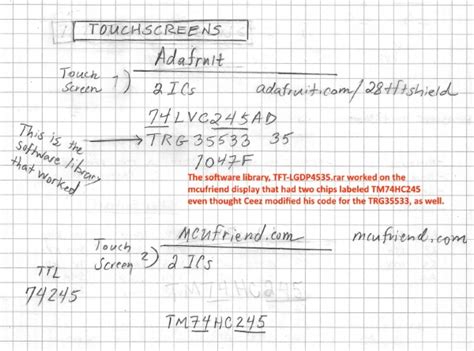 TOUCHSCREENS
Adafruit
Touch Screen 1) 2 ICs adafruit.com/28tftshield
74LVC245AD
This is the software library that worked → TRG35533 35
1047F
The software library, TFT-LGDP4535.rar worked on the
mcufriend display that had two chips labeled TM74HC245
even thought Ceez modified his code for the TRG35533, as well.
mcufriend.com
Touch Screen 2) 2 ICs mcufriend.com
TTL
74245
TM74HC245
TM74HC245